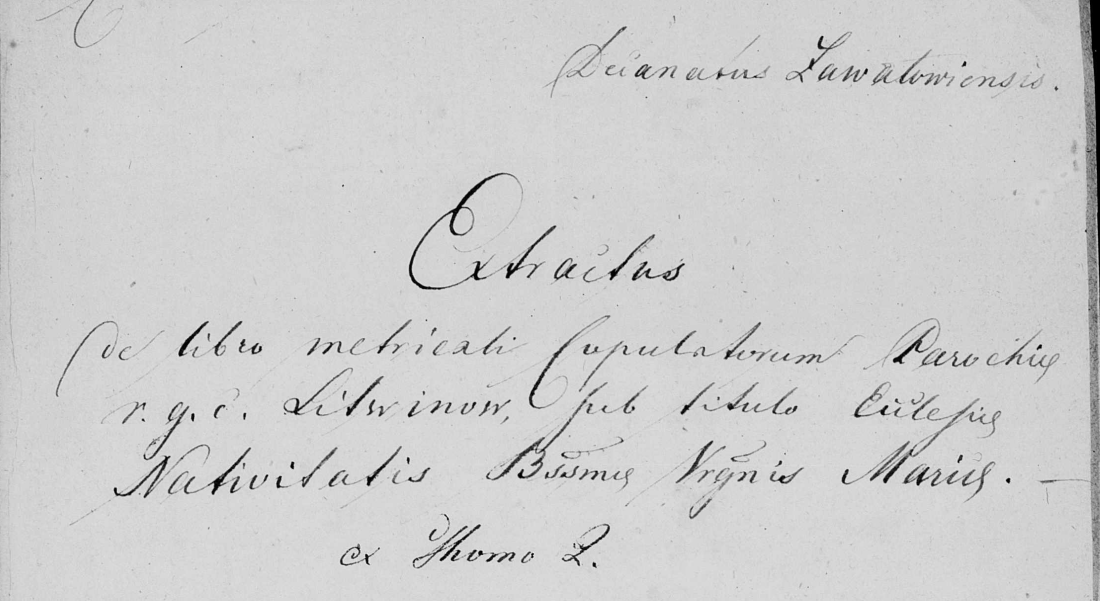 Decanatus Zawalowiensis.
Extractus
de libro metricali Copulatorum Parochiæ
r. g. c. Litwinow, sub titulo Ecclesiæ
Nativitatis Bssmæ Vrgnis Mariæ. —
ex Thomo 2.